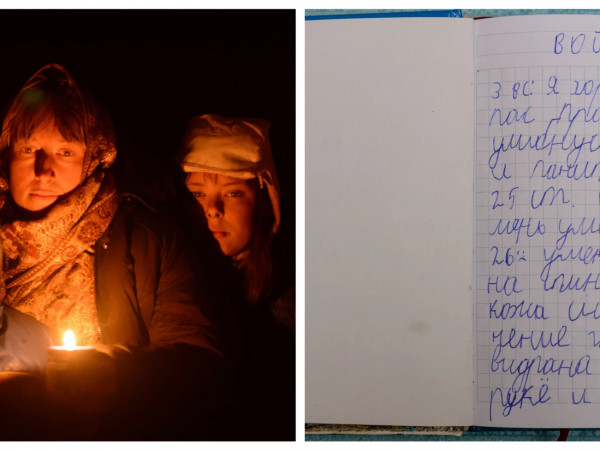 ВОЙ
З вс: Я хор
пос про
умианул
и пани
25 ст.
мень уми
26го умен
на спин
кожа ш
чение г
видрана
рукё и